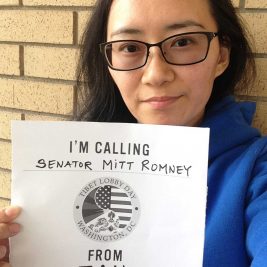 I'M CALLING
SENATOR MITT ROMNEY
TIBET LOBBY DAY
WASHINGTON, DC
FROM